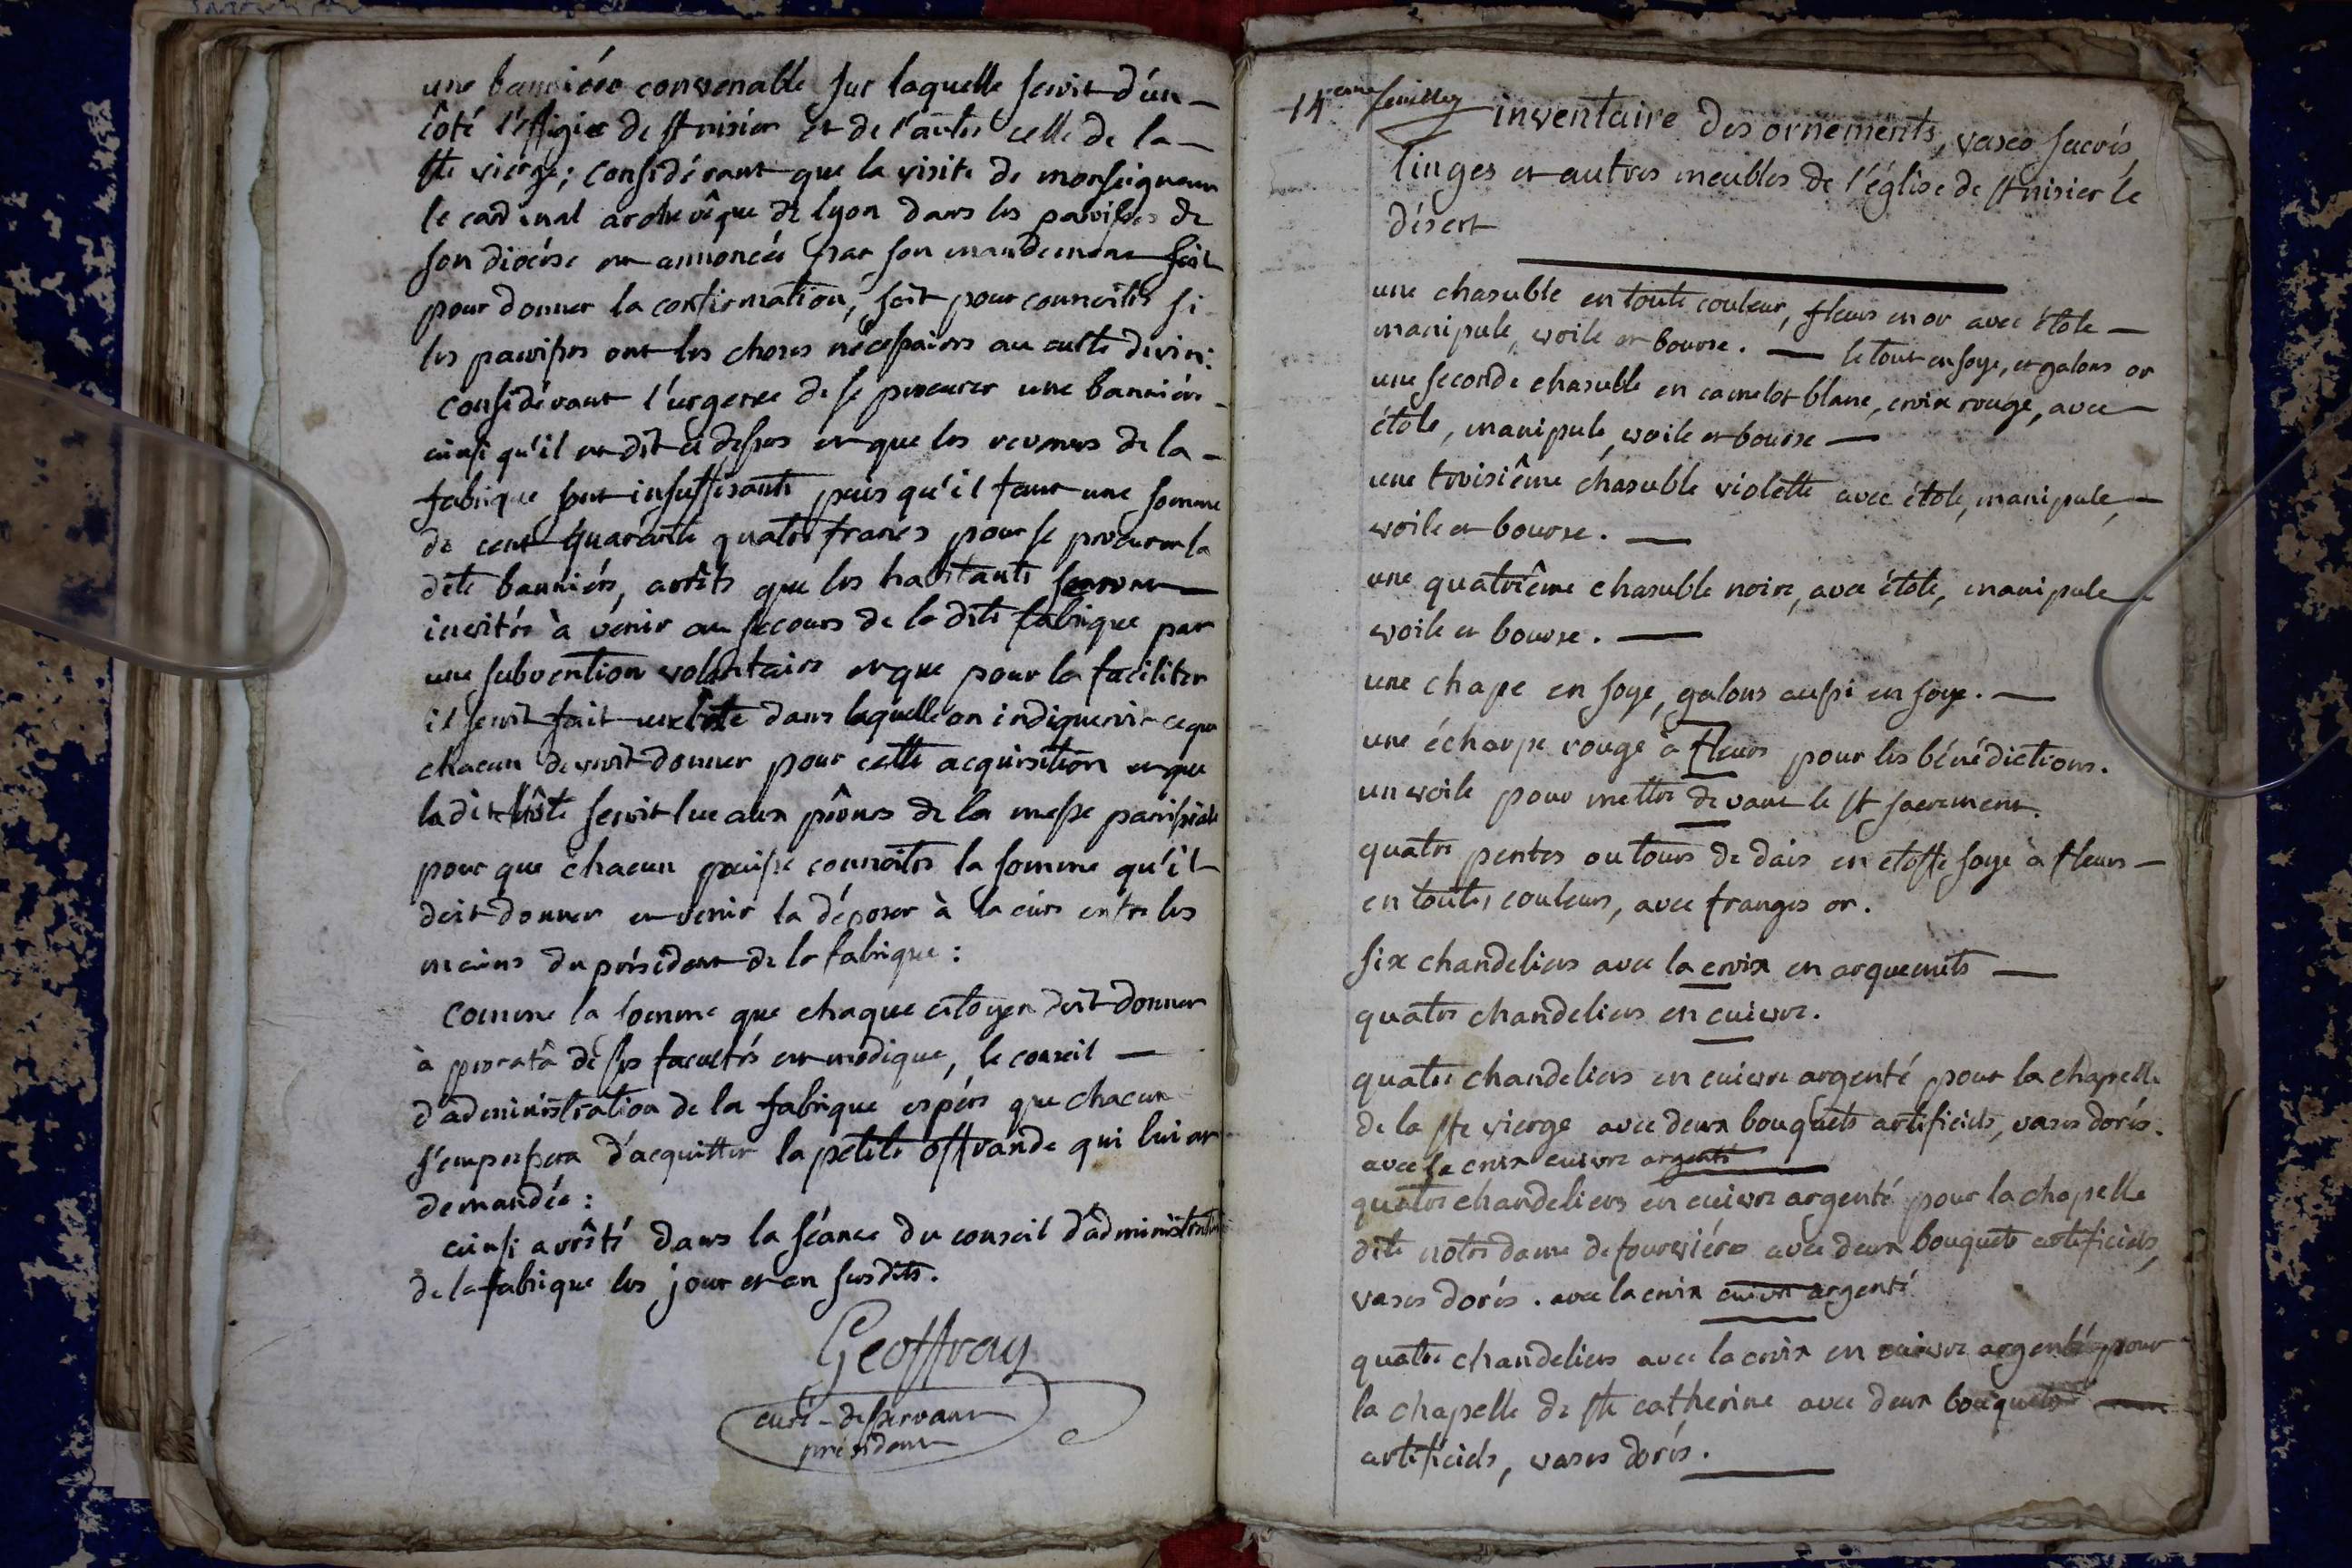 une bannière convenable sur laquelle seroit d'un
côté l'éffigie de st nisier et de l'autre celle de la
ste vierge; considérant que la visite de monseigneur
le cardinal archevêque de lyon dans les paroisses de
son diocèse est annoncée par son mandement soit
pour donner la confirmation, soit pour connoitre si
les paroisses ont les choses nécessaires au culte divin:
considérant l'urgence de se procurer une bannière
ainsi qu'il est dit ci dessus et que les revenus de la
fabrique sont insuffisants puis qu'il faut une somme
de cent quarante quatre francs pour se procurer la
dite bannière, arrête que les habitants seront
invités à venir au secours de la dite fabrique par
une subvention volontaire et que pour la faciliter
il seroit fait une liste dans laquelle on indiqueroit ce que
chacun devroit donner pour cette acquisition et que
la dite liste seroit lue aux prônes de la messe paroissiale
pour que chacun puisse connoitre la somme qu'il
doit donner et venir la déposer à la cure entre les
mains du président de la fabrique:
comme la somme que chaque citoyen doit donner
à prorata de ses facultés est modique, le conseil
d'administration de la fabrique espère que chacun
s'empressera d'acquitter la petite offrande qui lui est
demandée:
ainsi arrêté dans la séance du conseil d'administration
de la fabrique les jour et an susdits.
Geoffray
curé-desservant
président
14eme feuillet inventaire des ornements, vases sacrés,
linges et autres meubles de l'église de st nisier le
désert
une chasuble en toute couleur, fleurs en or avec étole
manipule, voile et bourse. le tout en soye, et galons or
une seconde chasuble en camelot blanc, croix rouge, avec
étole, manipule, voile et bourse
une troisième chasuble violette avec étole, manipule,
voile et bourse.
une quatrième chasuble noire, avec étole, manipule
voile et bourse.
une chape en soye, galons aussi en soye.
une écharpe rouge à fleurs pour les bénédictions.
un voile pour mettre devant le st sacrement.
quatre pentes ou tours de dais en etoffe soye à fleurs
en toutes couleurs, avec franges or.
six chandeliers avec la croix en arquemite
quatre chandeliers en cuivre.
quatre chandeliers en cuivre argenté pour la chapelle
de la ste vierge avec deux bouquets artificiels, vases dorés.
avec la croix cuivre argenté
quatre chandeliers en cuivre argenté pour la chapelle
dite notre dame de fourvière avec deux bouquets artificiels,
vases dorés. avec la croix cuivre argenté
quatre chandeliers avec la croix en cuivre argenté pour
la chapelle de ste catherine avec deux bouquets
artificiels, vases dorés.